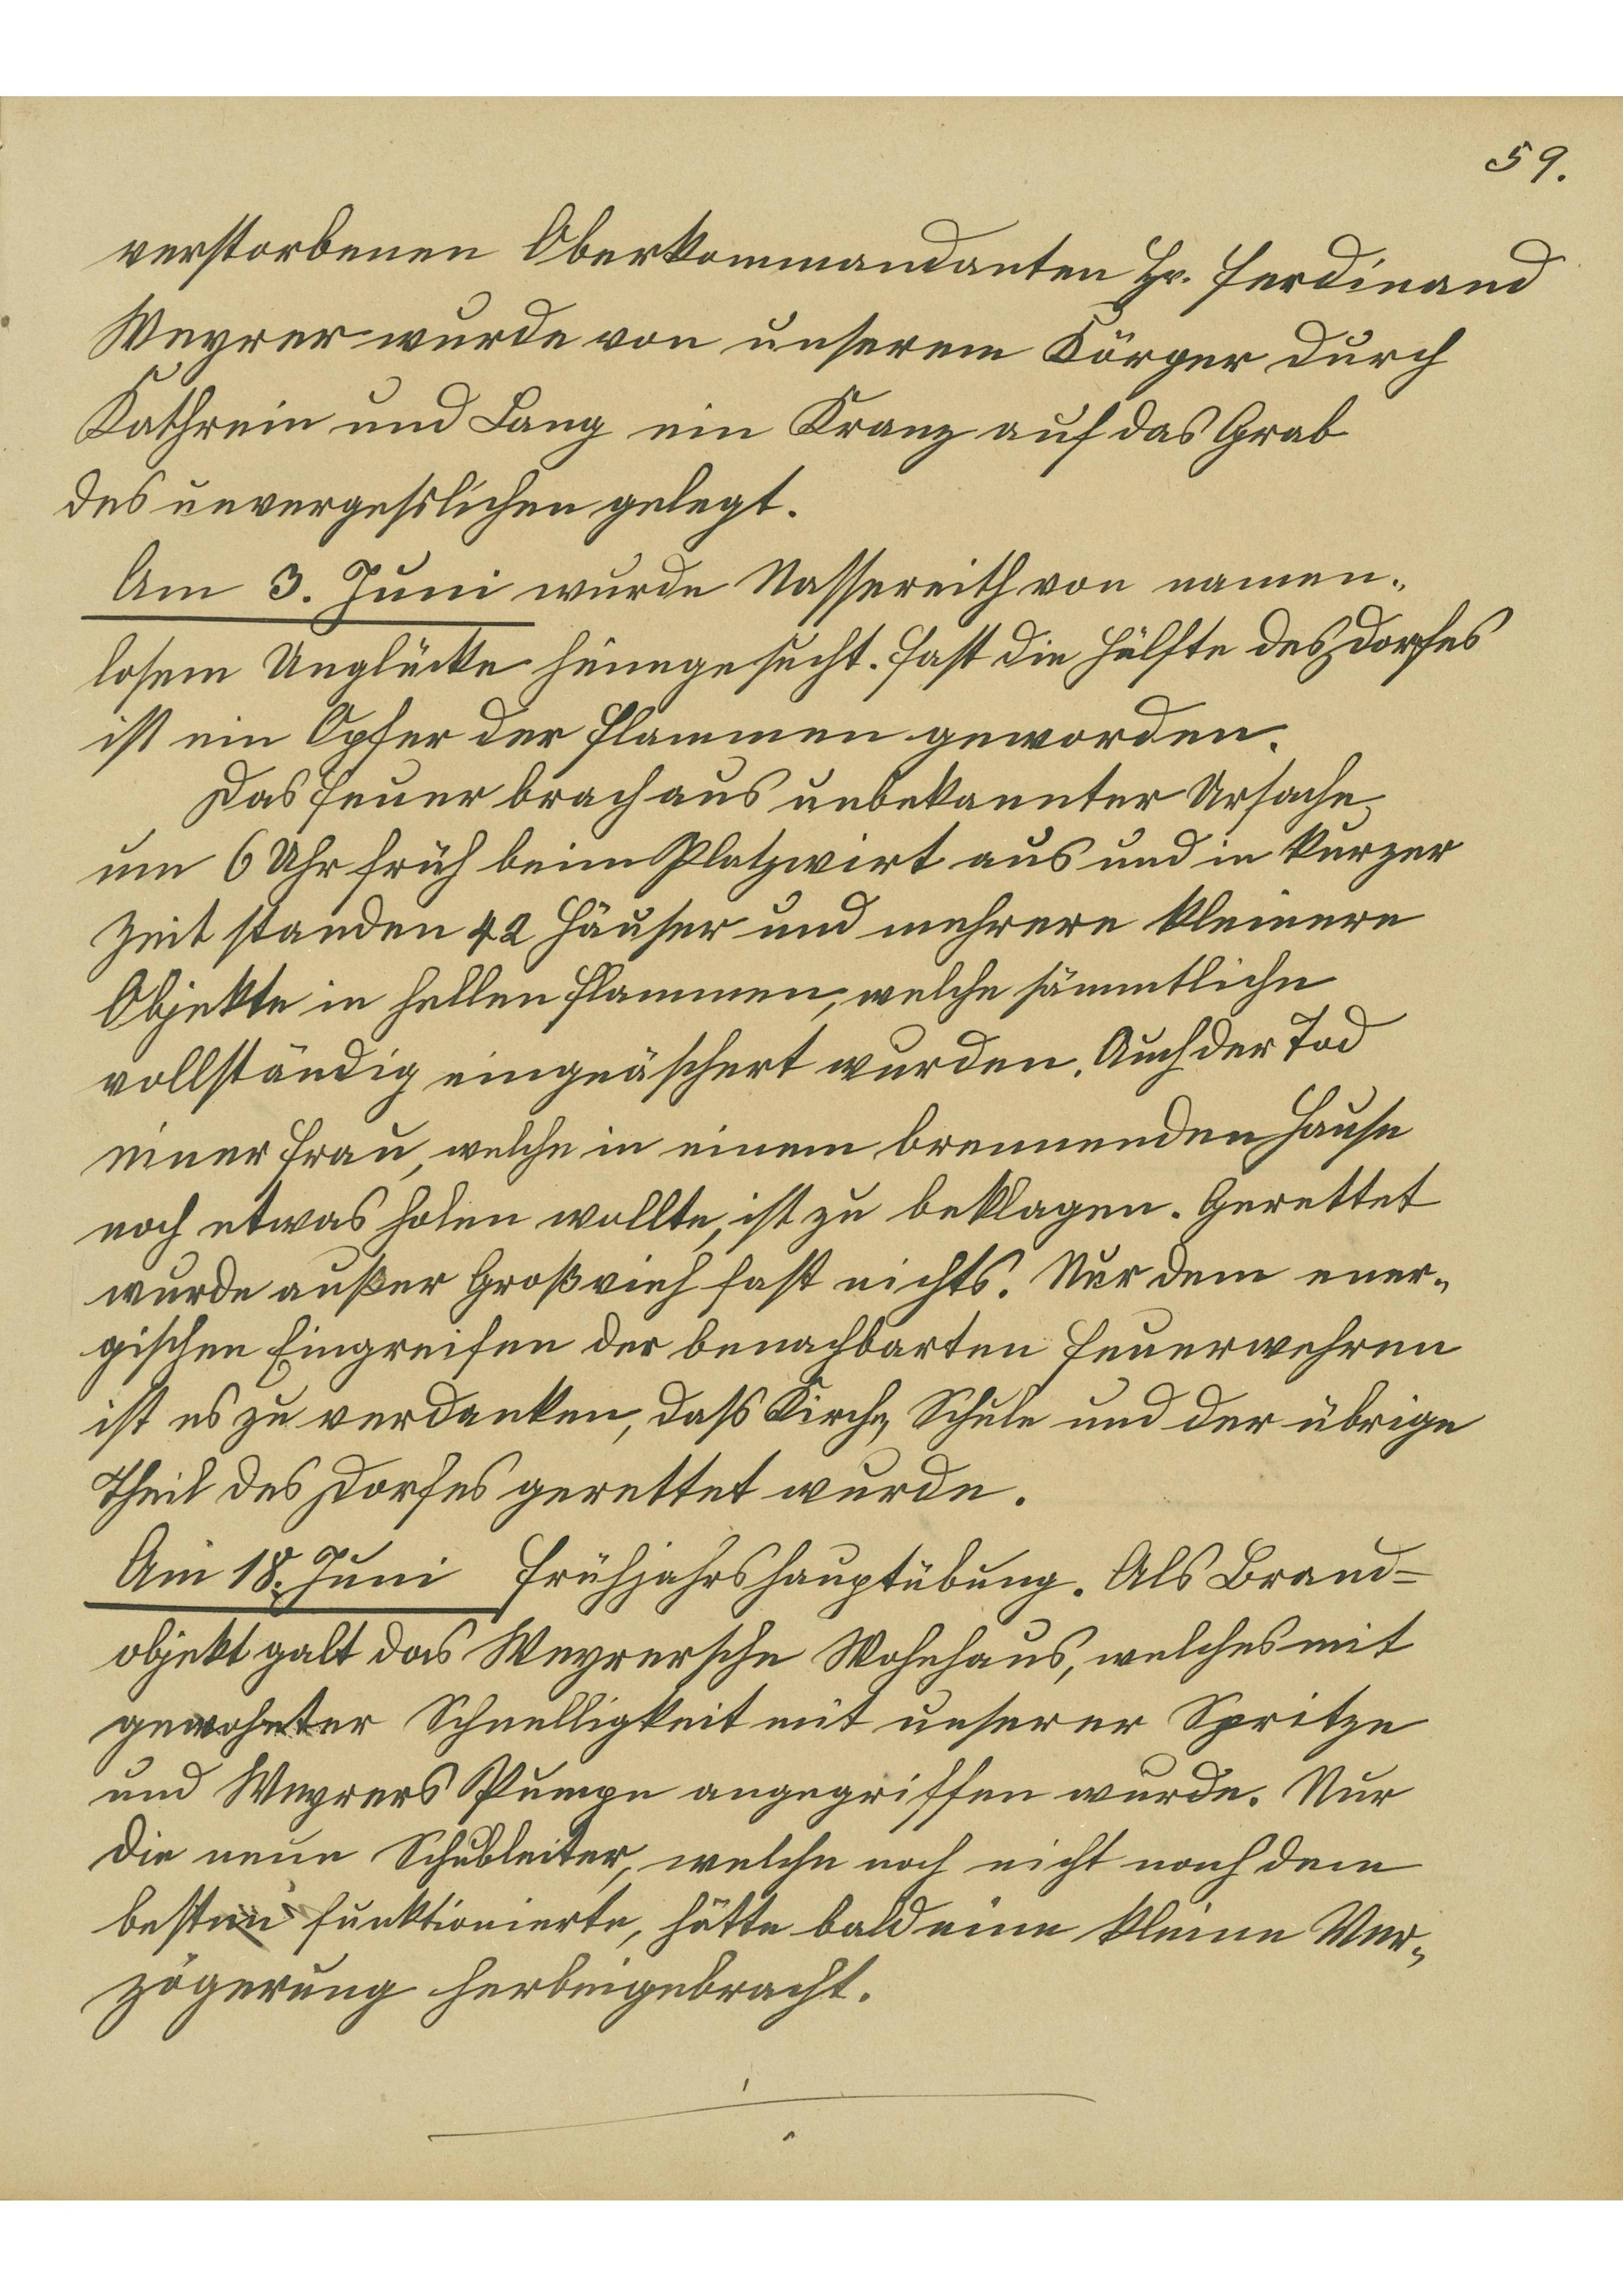 59.
verstorbenen Oberkommandanten Hr. Ferdinand
Weyrer wurde von unserem Körper durch
Kathrein und Lang ein Kranz auf das Grab
des unvergesslichen gelegt.
Am 3. Juni wurde Nassereith von namen-
losem Unglücke heimgesucht. Fast die Hälfte des Dorfes
ist ein Opfer der Flammen geworden.
Das Feuer brach aus unbekannter Ursache
um 6 Uhr früh beim Platzwirt aus und in kurzer
Zeit standen 42 Häuser und mehrere kleinere
Objekte in hellen Flammen, welche sämmtliche
vollständig eingeäschert wurden. Auch der Tod
einer Frau, welche in einem brennenden Hause
noch etwas holen wollte, ist zu beklagen. Gerettet
wurde außer Großvieh fast nichts. Nur dem ener-
gischen Eingreifen der benachbarten Feuerwehren
ist es zu verdanken, dass Kirche, Schule und der übrige
Theil des Dorfes gerettet wurde.
Am 18. Juni Frühjahrshauptübung. Als Brand-
objekt galt das Weyrersche Wohnhaus, welches mit
gewohnter Schnelligkeit mit unserer Spritze
und Weyrers Pumpe angegriffen wurde. Nur
die neue Schubleiter, welche noch nicht nach dem
besten funktionierte, hätte bald eine kleine Ver-
zögerung herbeigebracht.